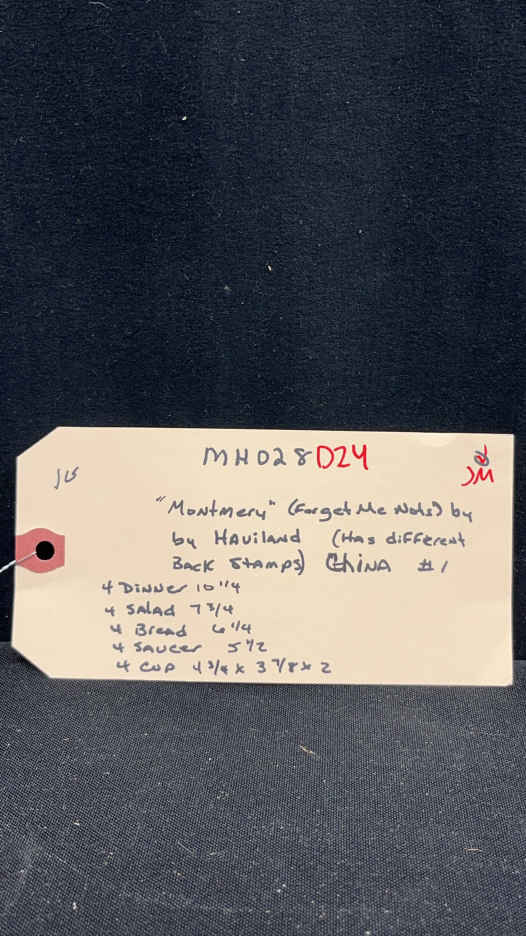 MHD28D24
"Montmery" (Forget Me Nots) by
by Haviland (Has different
Back Stamps) China #1
4 Dinner 10 1/4
4 Salad 7 3/4
4 Bread 6 1/4
4 Saucer 5 1/2
4 Cup 4 3/4 x 3 7/8 x 2
JM